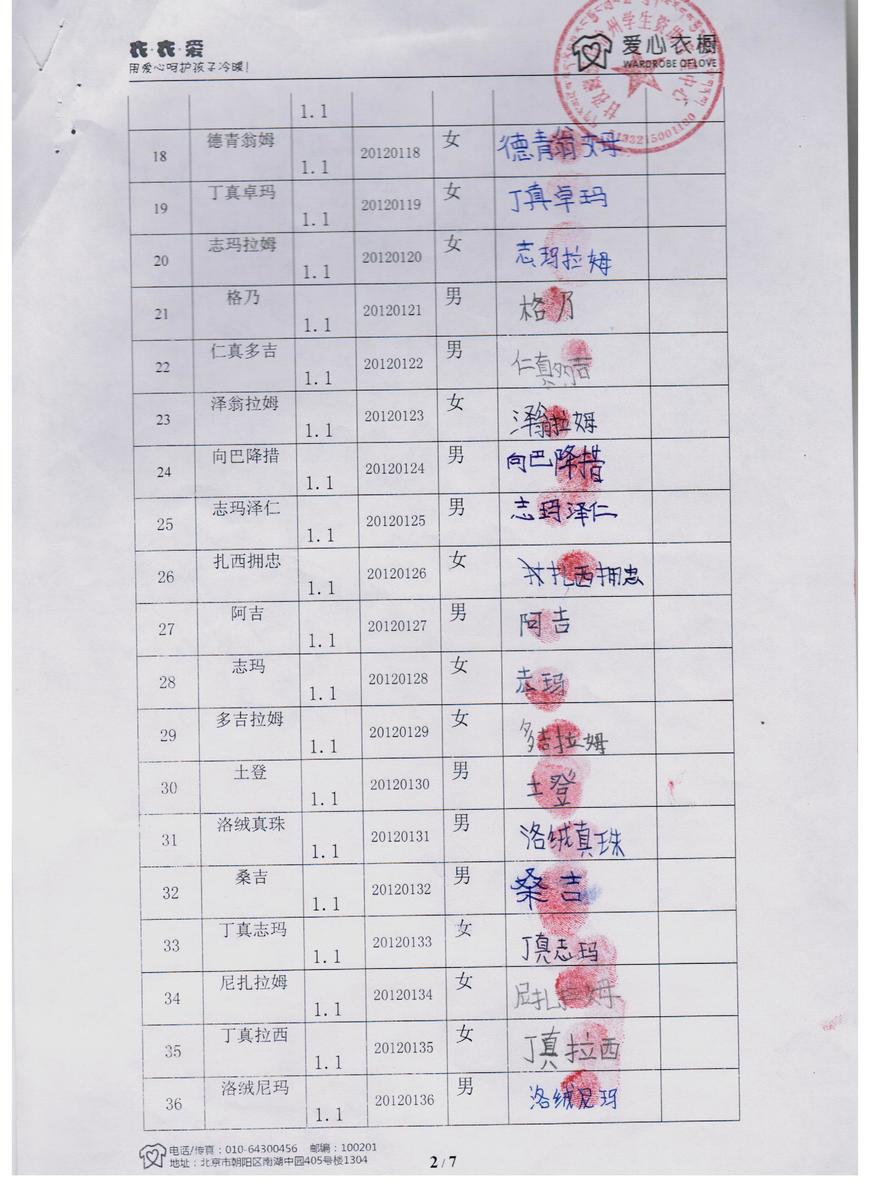 衣·衣·爱
用爱心呵护孩子冷暖!
爱心衣橱
WARDROBE OF LOVE
州学生资
中心
甘孜藏
33215001180
1.1
18 德青翁姆 1.1 20120118 女 德青翁姆
19 丁真卓玛 1.1 20120119 女 丁真卓玛
20 志玛拉姆 1.1 20120120 女 志玛拉姆
21 格乃 1.1 20120121 男 格乃
22 仁真多吉 1.1 20120122 男 仁真多吉
23 泽翁拉姆 1.1 20120123 女 泽翁拉姆
24 向巴降措 1.1 20120124 男 向巴降措
25 志玛泽仁 1.1 20120125 男 志玛泽仁
26 扎西拥忠 1.1 20120126 女 扎西拥忠
27 阿吉 1.1 20120127 男 阿吉
28 志玛 1.1 20120128 女 志玛
29 多吉拉姆 1.1 20120129 女 多吉拉姆
30 土登 1.1 20120130 男 土登
31 洛绒真珠 1.1 20120131 男 洛绒真珠
32 桑吉 1.1 20120132 男 桑吉
33 丁真志玛 1.1 20120133 女 丁真志玛
34 尼扎拉姆 1.1 20120134 女 尼扎拉姆
35 丁真拉西 1.1 20120135 女 丁真拉西
36 洛绒尼玛 1.1 20120136 男 洛绒尼玛
电话/传真:010-64300456 邮编:100201
地址:北京市朝阳区南湖中园405号楼1304
2 / 7